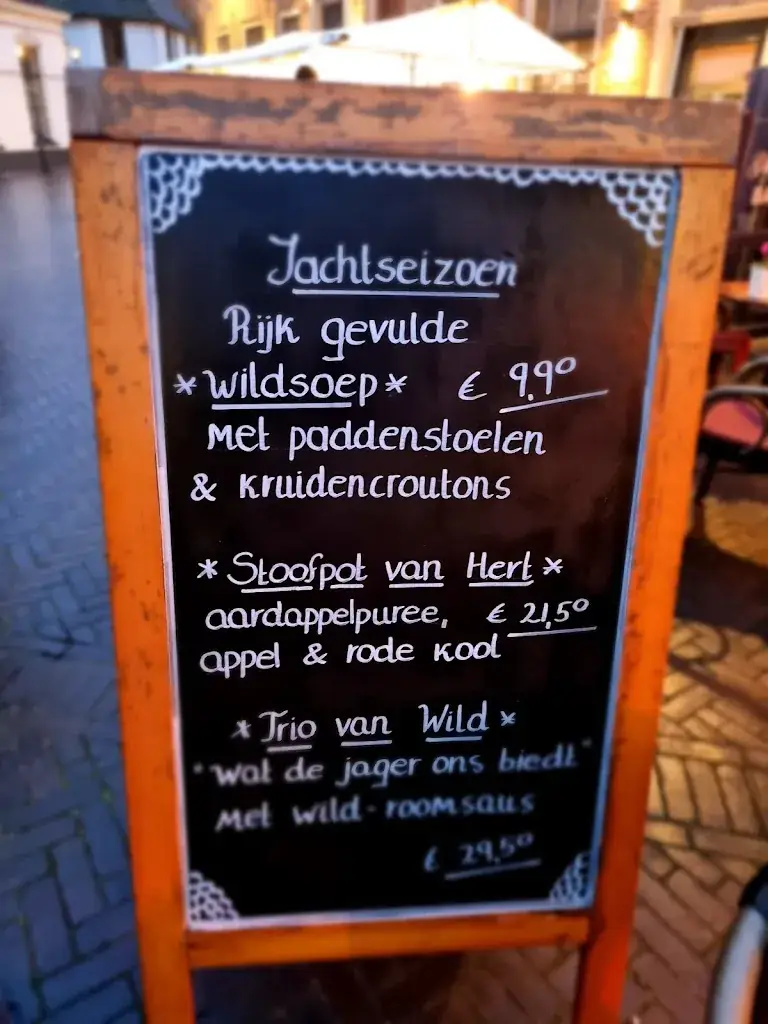 Jachtseizoen
Rijk gevulde
*Wildsoep* € 9,90
Met paddenstoelen
& kruidencroutons
*Stoofpot van Hert*
aardappelpuree, € 21,50
appel & rode kool
*Trio van Wild*
"wat de jager ons biedt"
Met wild-roomsaus
€ 29,50